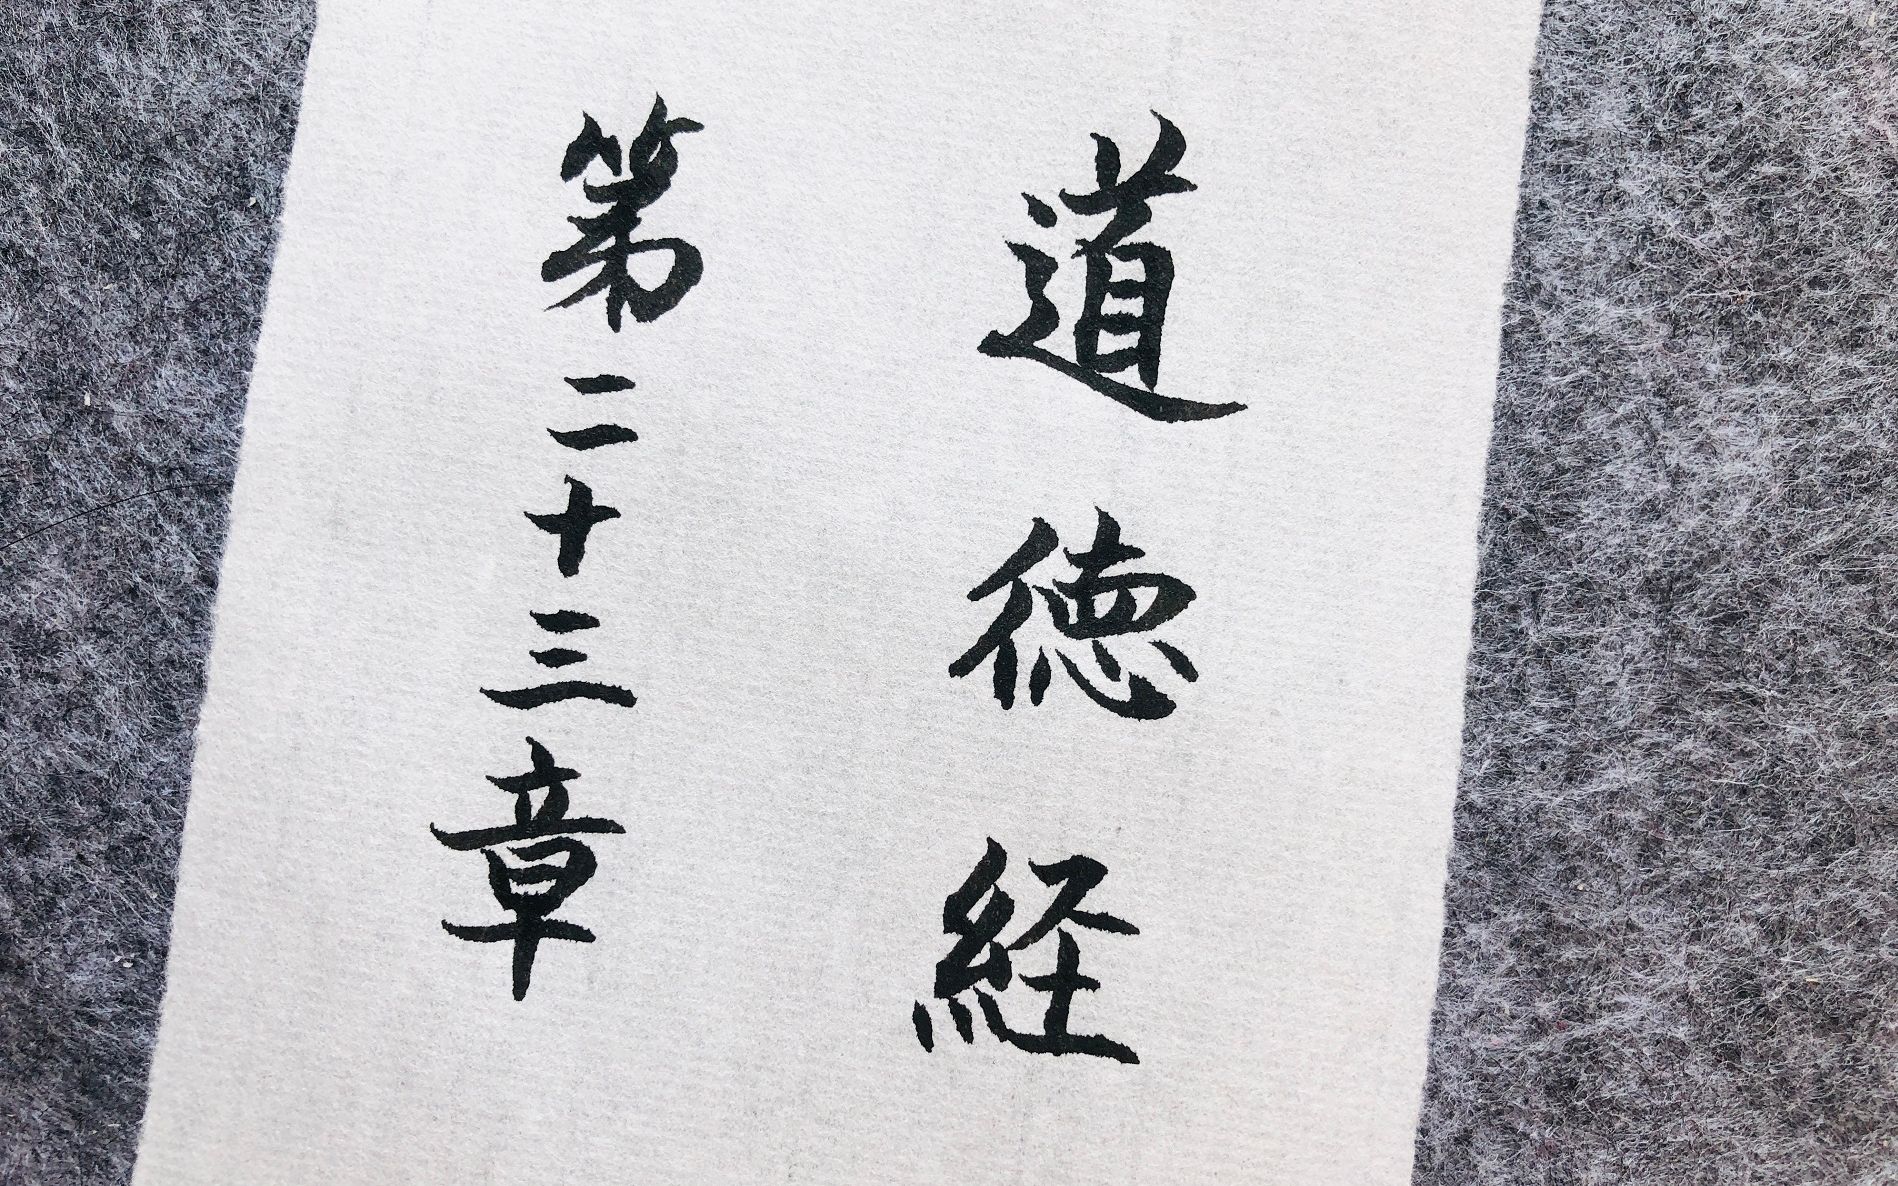 道徳経
第二十三章